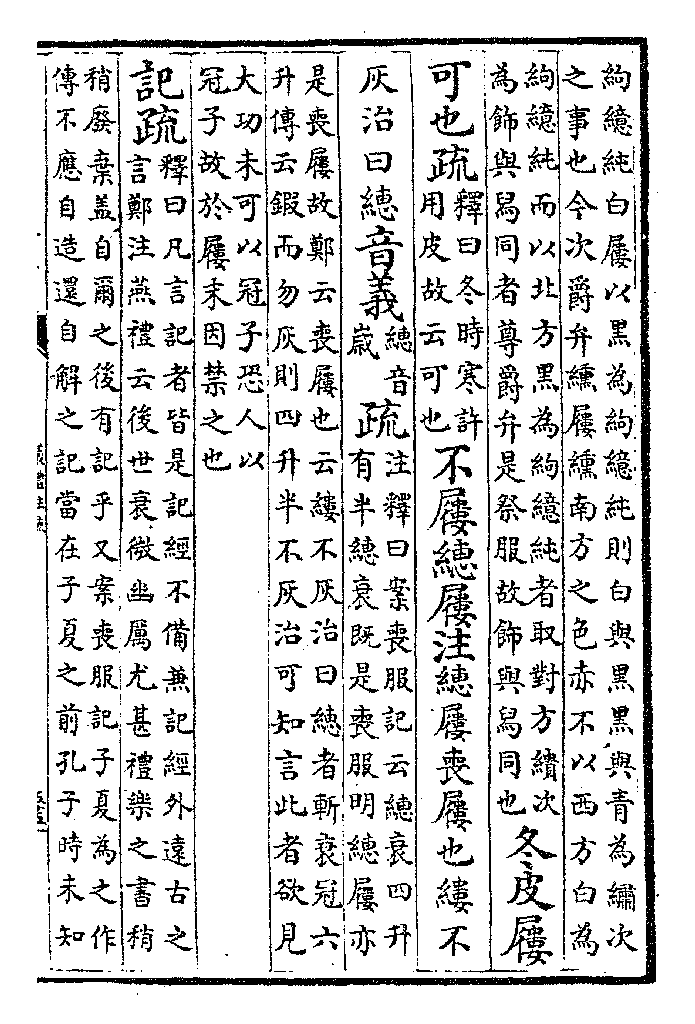 絇繶純白屨以黑為絇繶純則白與黑黑與青為繡次
之事也今次爵弁纁屨纁南方之色赤不以西方白為
絇繶純而以北方黑為絇繶純者取對方繢次
為飾與舄同者尊爵弁是祭服故飾與舄同也
冬皮屨
可也疏
釋曰冬時寒許
用皮故云可也
不屨繐屨注繐屨喪屨也縷不
灰治曰繐音義
繐音
歲
疏
注釋曰案喪服記云繐衰四升
有半繐衰既是喪服明繐屨亦
是喪屨故鄭云喪屨也云縷不灰治曰繐者斬衰冠六
升傳云鍜而勿灰則四升半不灰治可知言此者欲見
大功未可以冠子恐人以
冠子故於屨末因禁之也
記疏
釋曰凡言記者皆是記經不備兼記經外遠古之
言鄭注燕禮云後世衰微幽厲尤甚禮樂之書稍
稍廢棄蓋自爾之後有記乎又案喪服記子夏為之作
傳不應自造還自解之記當在子夏之前孔子時未知